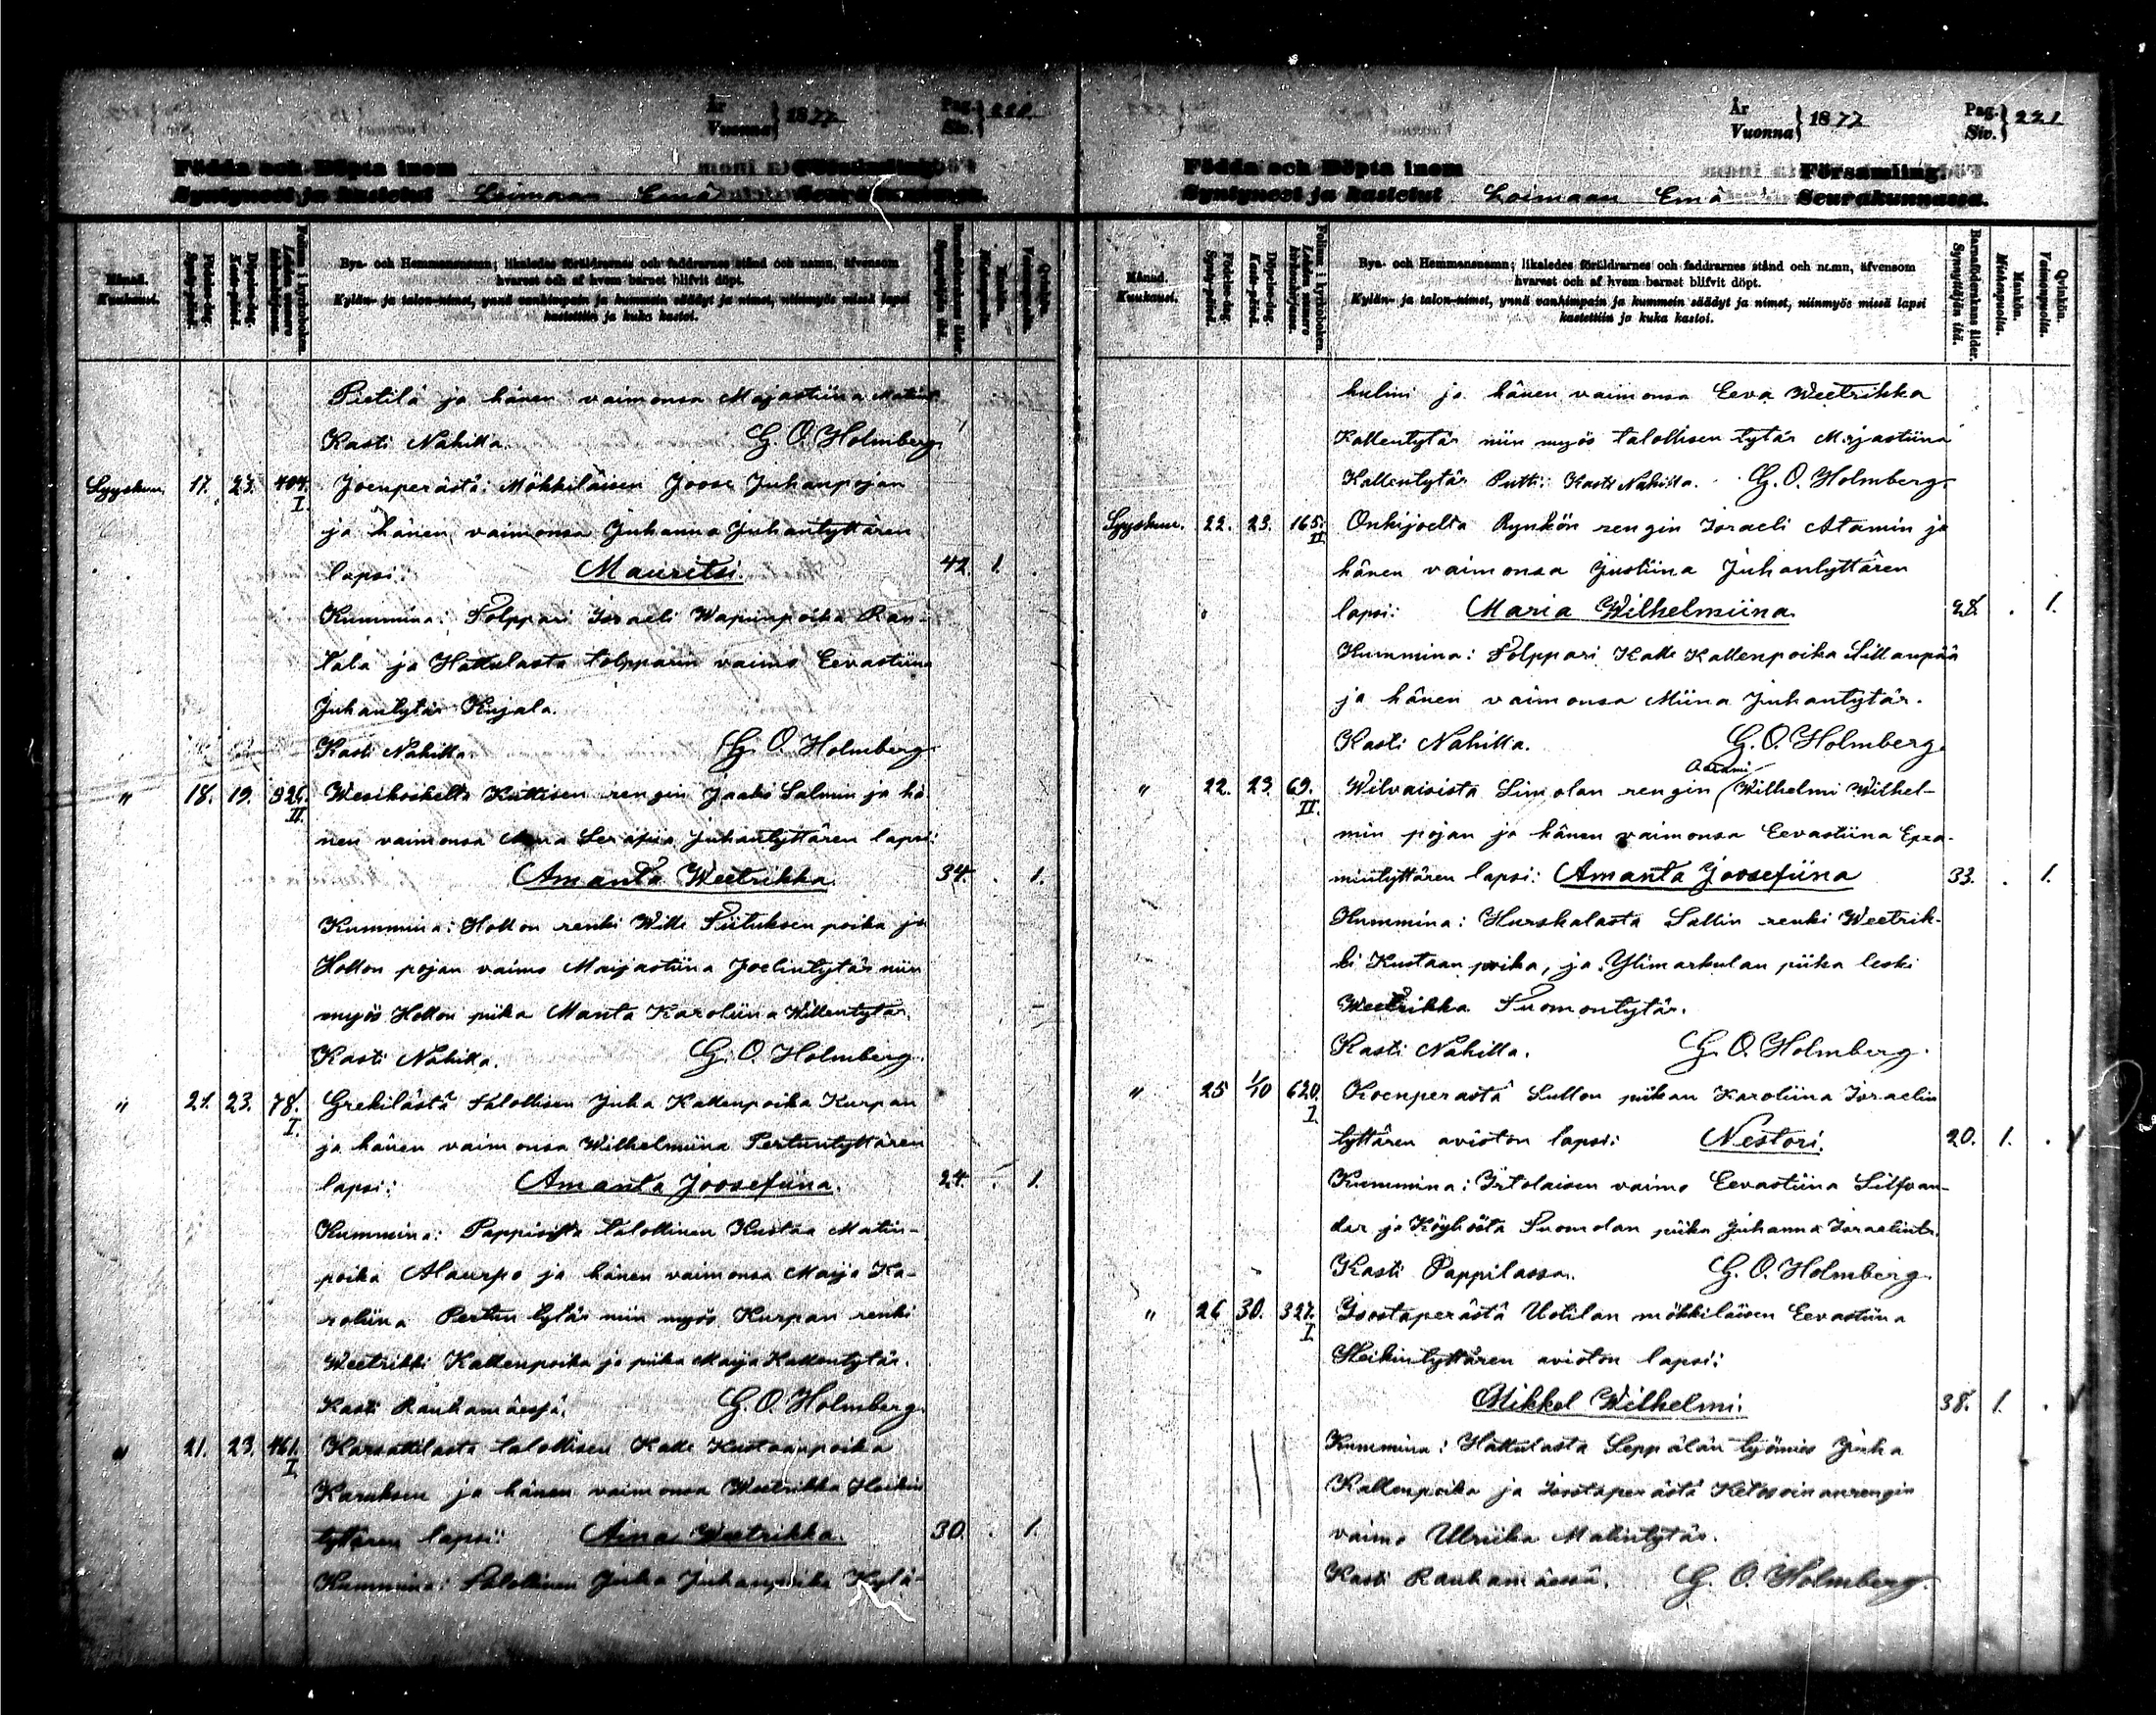 År
Vuonna } 1877
Pag.
Siv. } 220
Födda och Döpta inom Församling
Syntyneet ja kastetut Loimaan Emä Seurakunnassa.
Månad.
Kuukausi.
Födelse-dag.
Synty-päivä.
Döpelse-dag.
Kaste-päivä.
Folium i kyrkoboken.
Lehden numero kirkonkirjassa.
Bya- och Hemmansnamn; likaledes föräldrarnes och faddrarnes stånd och namn, äfvensom
hvarest och af hvem barnet blifvit döpt.
Kylän- ja talon-nimet, ynnä vanhimpain ja kummein säädyt ja nimet, niinmyös missä lapsi
kastettiin ja kuka kastoi.
Barnaföderskans ålder.
Synnyttäjän ikä.
Mankön.
Miehenpuolia.
Qvinkön.
Vaimonpuolia.
Pietilä ja hänen vaimonsa Majastiina
Kasti Nahilla. G. O. Holmberg.
Syyskuu. 17. 23. 404. I. Joenperästä: Mökkiläisen Joose Juhanpojan
ja hänen vaimonsa Juhanna Juhantyttären
lapsi: Mauritsi. 42. 1.
Kummina: Tolppari Israeli Wapunpoika Ran-
tala ja Hattulasta tolpparin vaimo Eevastiina
Juhantytär Kujala.
Kasti Nahilla. G. O. Holmberg.
" 18. 19. 326. II. Wesikoskelta Kittisen rengin Jaako Salmin ja hä
nen vaimonsa Anna Serafia Juhantyttären lapsi:
Amanta Weetrikka. 34. . 1.
Kummina: Hollon renki Wille Tiituksenpoika ja
Hollon pojan vaimo Maijastiina Joelintytär niin
myös Hollon piika Manta Karoliina Willentytär.
Kasti Nahilla. G. O. Holmberg.
" 21. 23. 78. I. Grekilästä Talollisen Juha Kallenpoika Kurpan
ja hänen vaimonsa Wilhelmiina Perttuntyttären
lapsi: Amanta Joosefiina. 24. . 1.
Kummina: Pappisista talollinen Kustaa Matin-
poika Alaurpo ja hänen vaimonsa Maija Ka-
roliina Pertun tytär niin myös Kurpan renki
Weetrikki Kallenpoika ja piika Maija Kallentytär.
Kasti Rauhamäessä. G. O. Holmberg.
" 21. 23. 461. I. talollisen Kalle Kustaanpoika
Karuksen ja hänen vaimonsa Weetrikka Heikin
tyttären lapsi: Aina Weetrikka. 30. . 1.
Kummina: Talollinen Juha Juhanpoika Kylä-
År
Vuonna } 1877
Pag.
Siv. } 221
Födda och Döpta inom Församling
Syntyneet ja kastetut Loimaan Emä Seurakunnassa.
Månad.
Kuukausi.
Födelse-dag.
Synty-päivä.
Döpelse-dag.
Kaste-päivä.
Folium i kyrkoboken.
Lehden numero kirkonkirjassa.
Bya- och Hemmansnamn; likaledes föräldrarnes och faddrarnes stånd och namn, äfvensom
hvarest och af hvem barnet blifvit döpt.
Kylän- ja talon-nimet, ynnä vanhimpain ja kummein säädyt ja nimet, niinmyös missä lapsi
kastettiin ja kuka kastoi.
Barnaföderskans ålder.
Synnyttäjän ikä.
Mankön.
Miehenpuolia.
Qvinkön.
Vaimonpuolia.
hulmi ja hänen vaimonsa Eeva Weetrikka
Kallentytär niin myös talollisen tytär Majastiina
Kallentytär Putti: Kasti Nahilla. G. O. Holmberg.
Syyskuu. 22. 23. 165. II. Onkijoelta Rynkön rengin Israeli Atamin ja
hänen vaimonsa Justiina Juhantyttären
lapsi: Maria Wilhelmiina. 28. . 1.
Kummina: Tolppari Kalle Kallenpoika Sillanpää
ja hänen vaimonsa Miina Juhantytär.
Kasti Nahilla. G. O. Holmberg.
Aatami
" 22. 23. 69. II. Wilvaisista Simolan rengin Wilhelmi Wilhel-
min pojan ja hänen vaimonsa Eevastiina Epra-
mintyttären lapsi: Amanta Joosefiina 33. . 1.
Kummina: Hurskalasta Sallin renki Weetrik-
ki Kustaan poika, ja Ylimarkulan piika leski
Weetrikka Tuomontytär.
Kasti Nahilla. G. O. Holmberg.
" 25 1/10 620. I. Koenperästä Sullon piikan Karoliina Israelin
tyttären avioton lapsi: Nestori. 20. 1. .
Kummina: Irtolaisen vaimo Eevastiina Silfvan-
der ja Köyhöstä Tuomolan piika Juhanna Israelintr.
Kasti Pappilassa. G. O. Holmberg.
" 26 30. 327. I. Isostaperästä Uotilan mökkiläisen Eevastiina
Heikintyttären avioton lapsi:
Mikkel Wilhelmi. 38. 1. .
Kummina: Hattulasta Seppälän työmies Juha
Kallenpoika ja Isostaperästä rengin
vaimo Ulriika Matintytär.
Kasti Rauhamäessä. G. O. Holmberg.